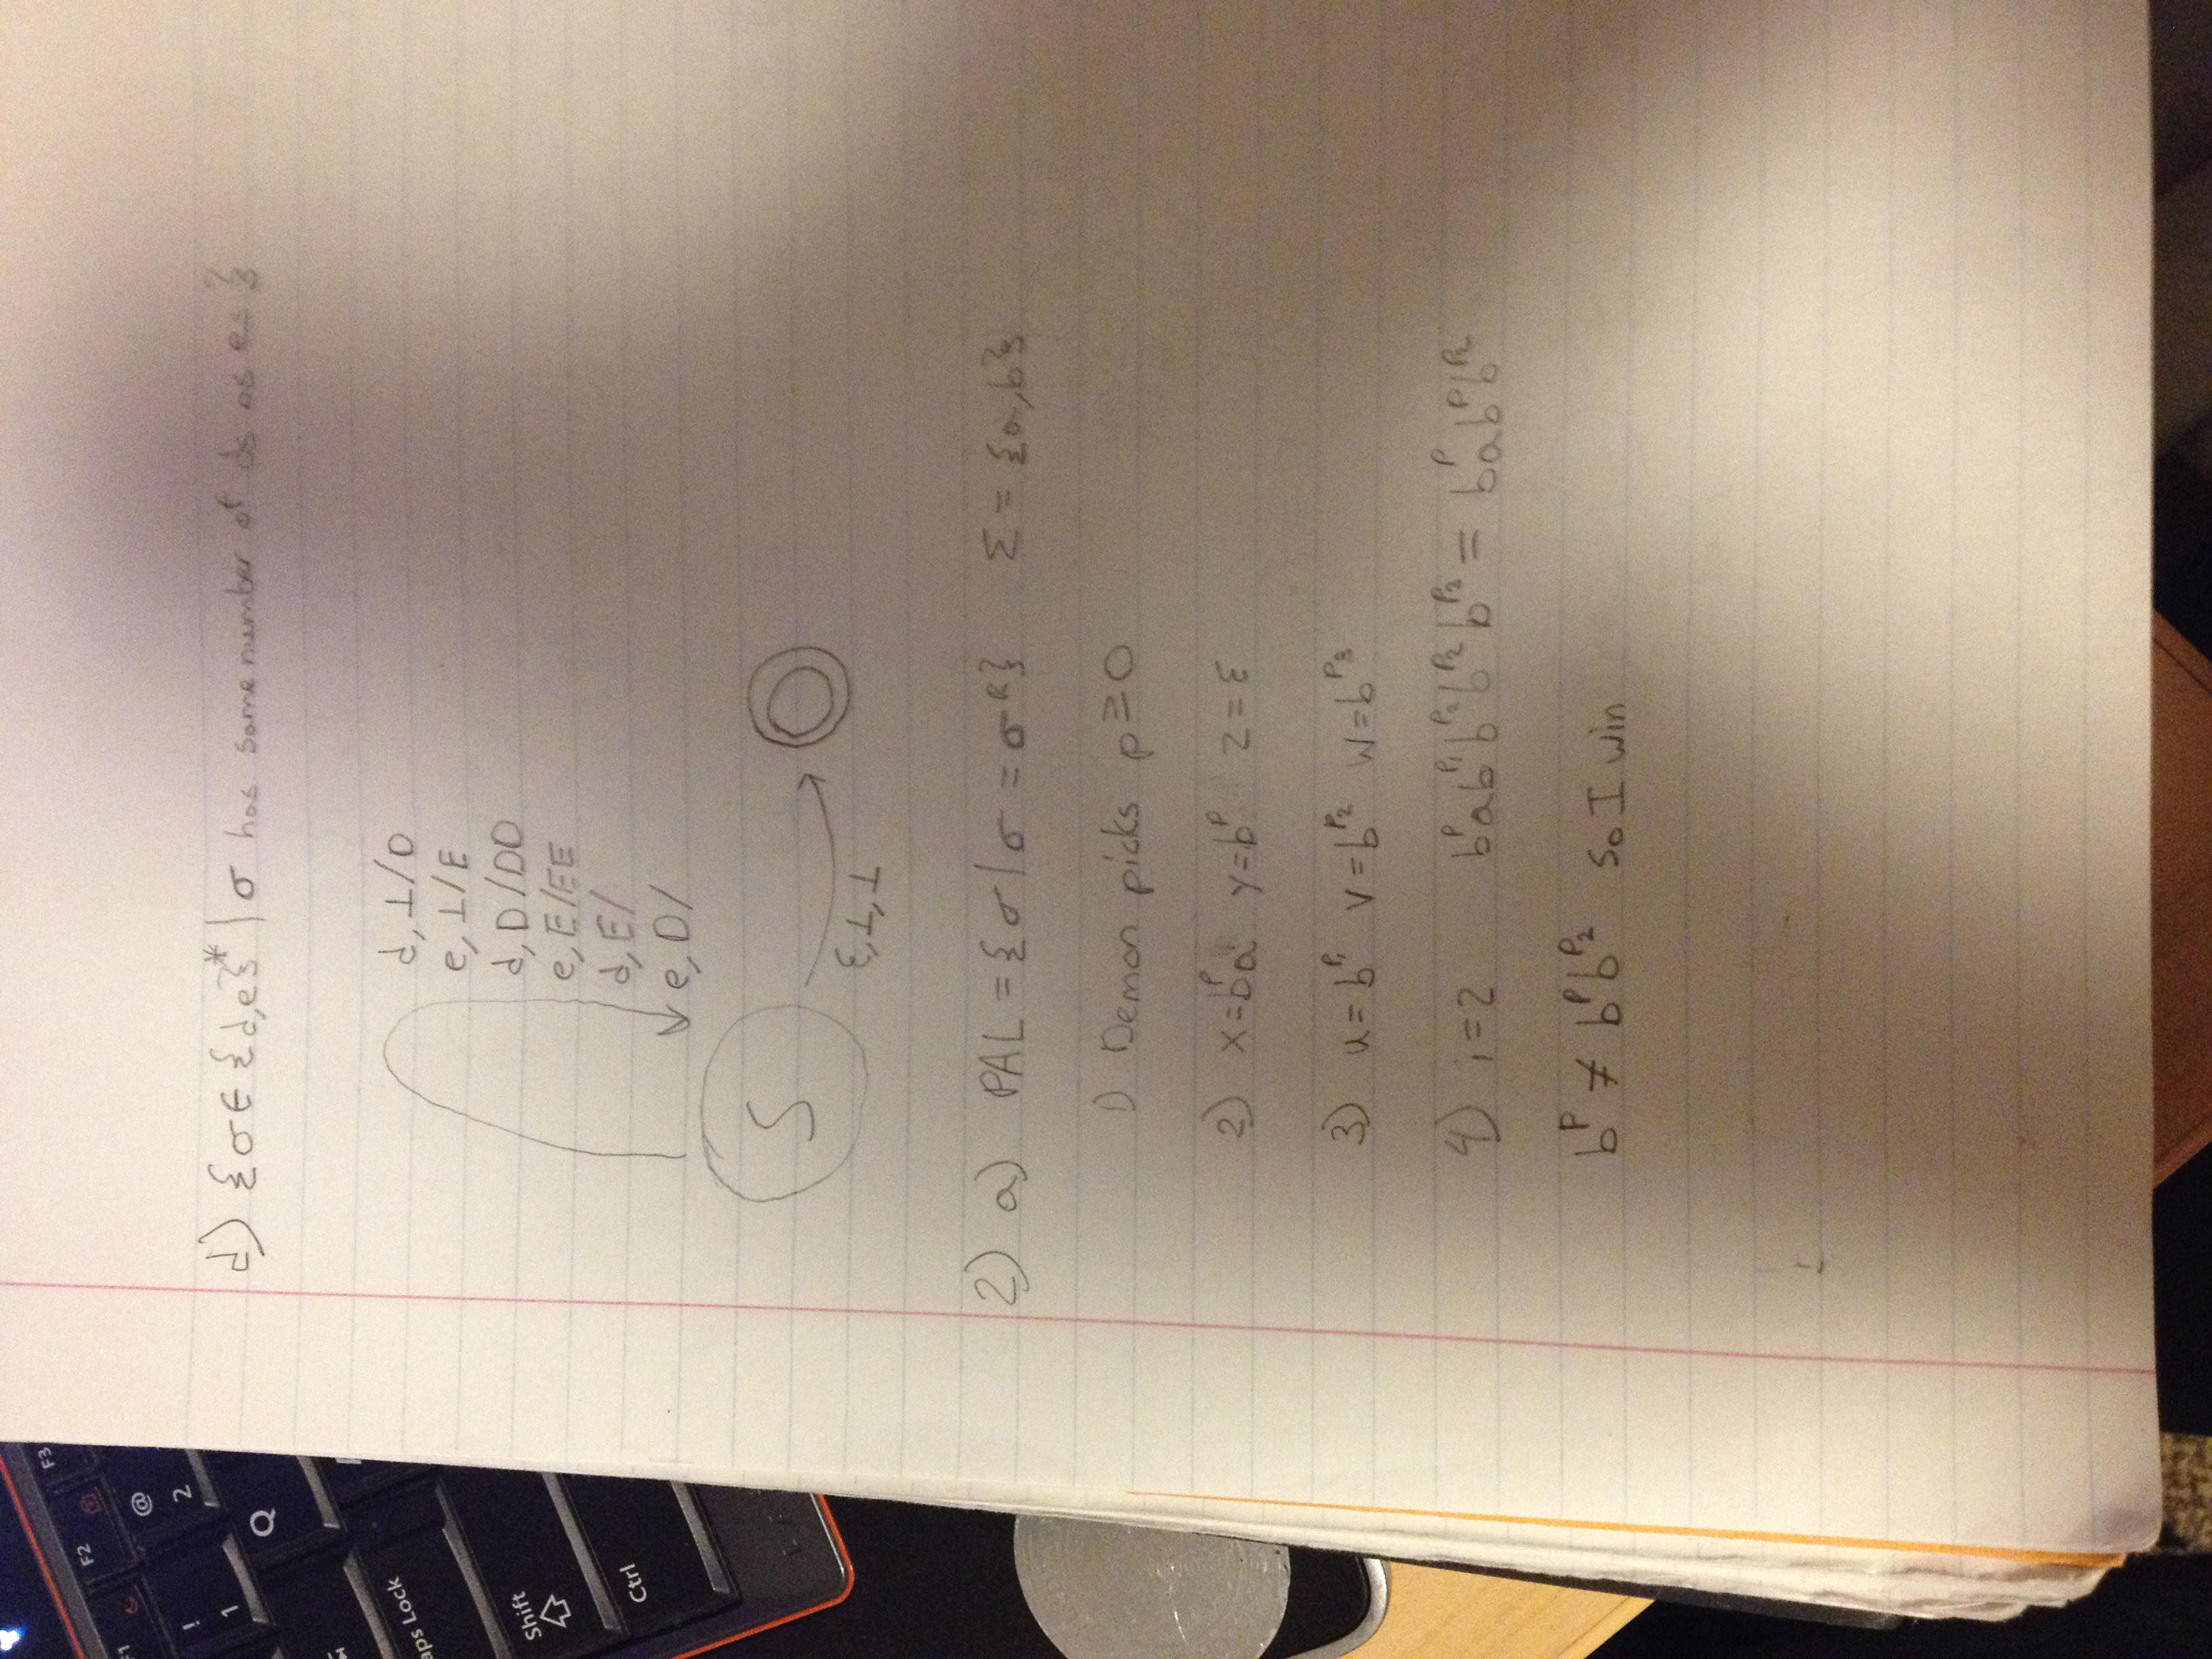 F1
F2
F3
!
1
@
2
Q
aps Lock
Shift
Ctrl
d) {σ∈{d,e}* | σ has same number of ds as es}
d,⊥/D
e,⊥/E
d,D/DD
e,E/EE
d,E/
e,D/
S
ε,⊥,⊥
2) a) PAL = {σ | σ = σᴿ} Σ = {a,b}
1) Demon picks p≥0
2) x=bᵖa y=bᵖ z=ε
3) u=b^p₁ v=b^p₂ w=b^p₃
4) i=2 bᵖab^p₁b^p₂b^p₂b^p₃ = bᵖabᵖb^p₂
bᵖ ≠ bᵖb^p₂ So I win